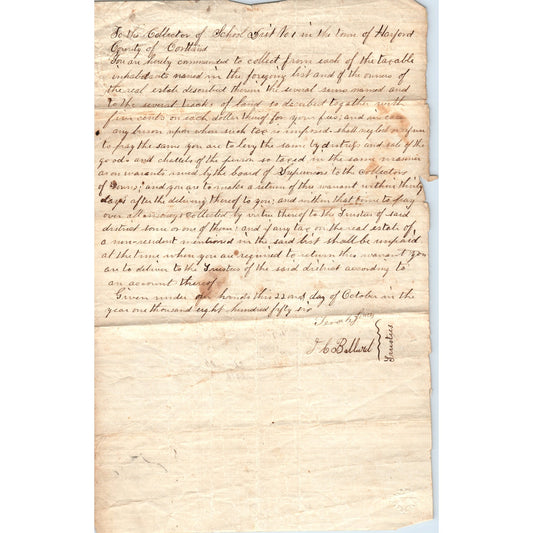 To the Collector of School Dist No 1 in the town of Harford
County of Cortland
You are hereby commanded to collect from each of the taxable
inhabitants named in the foregoing list and of the owners
of the real estate described therein the several sums named and
to the several tracks of land so described together with
five cents on each dollar thereof for your fees; and in case
any person upon whom such tax is imposed shall neglect or refuse
to pay the same you are to levy the same by distress and sale of the
goods and chattels of the person so taxed in the same manner
as on warrants issued by the board of Supervisors to the Collectors
of Towns; and you are to make a return of this warrant within thirty
days after the delivery thereof to you; and within that time to pay
over all moneys collected by virtue thereof to the Trustees of said
district some or one of them: and if any tax on the real estate of
a non-resident mentioned in the said list shall be unpaid
at the time when you are required to return this warrant you
are to deliver to the Trustees of the said district according to
an account thereof
Given under our hands this 22nd day of October in the
year one thousand eight hundred fifty six
Trustees